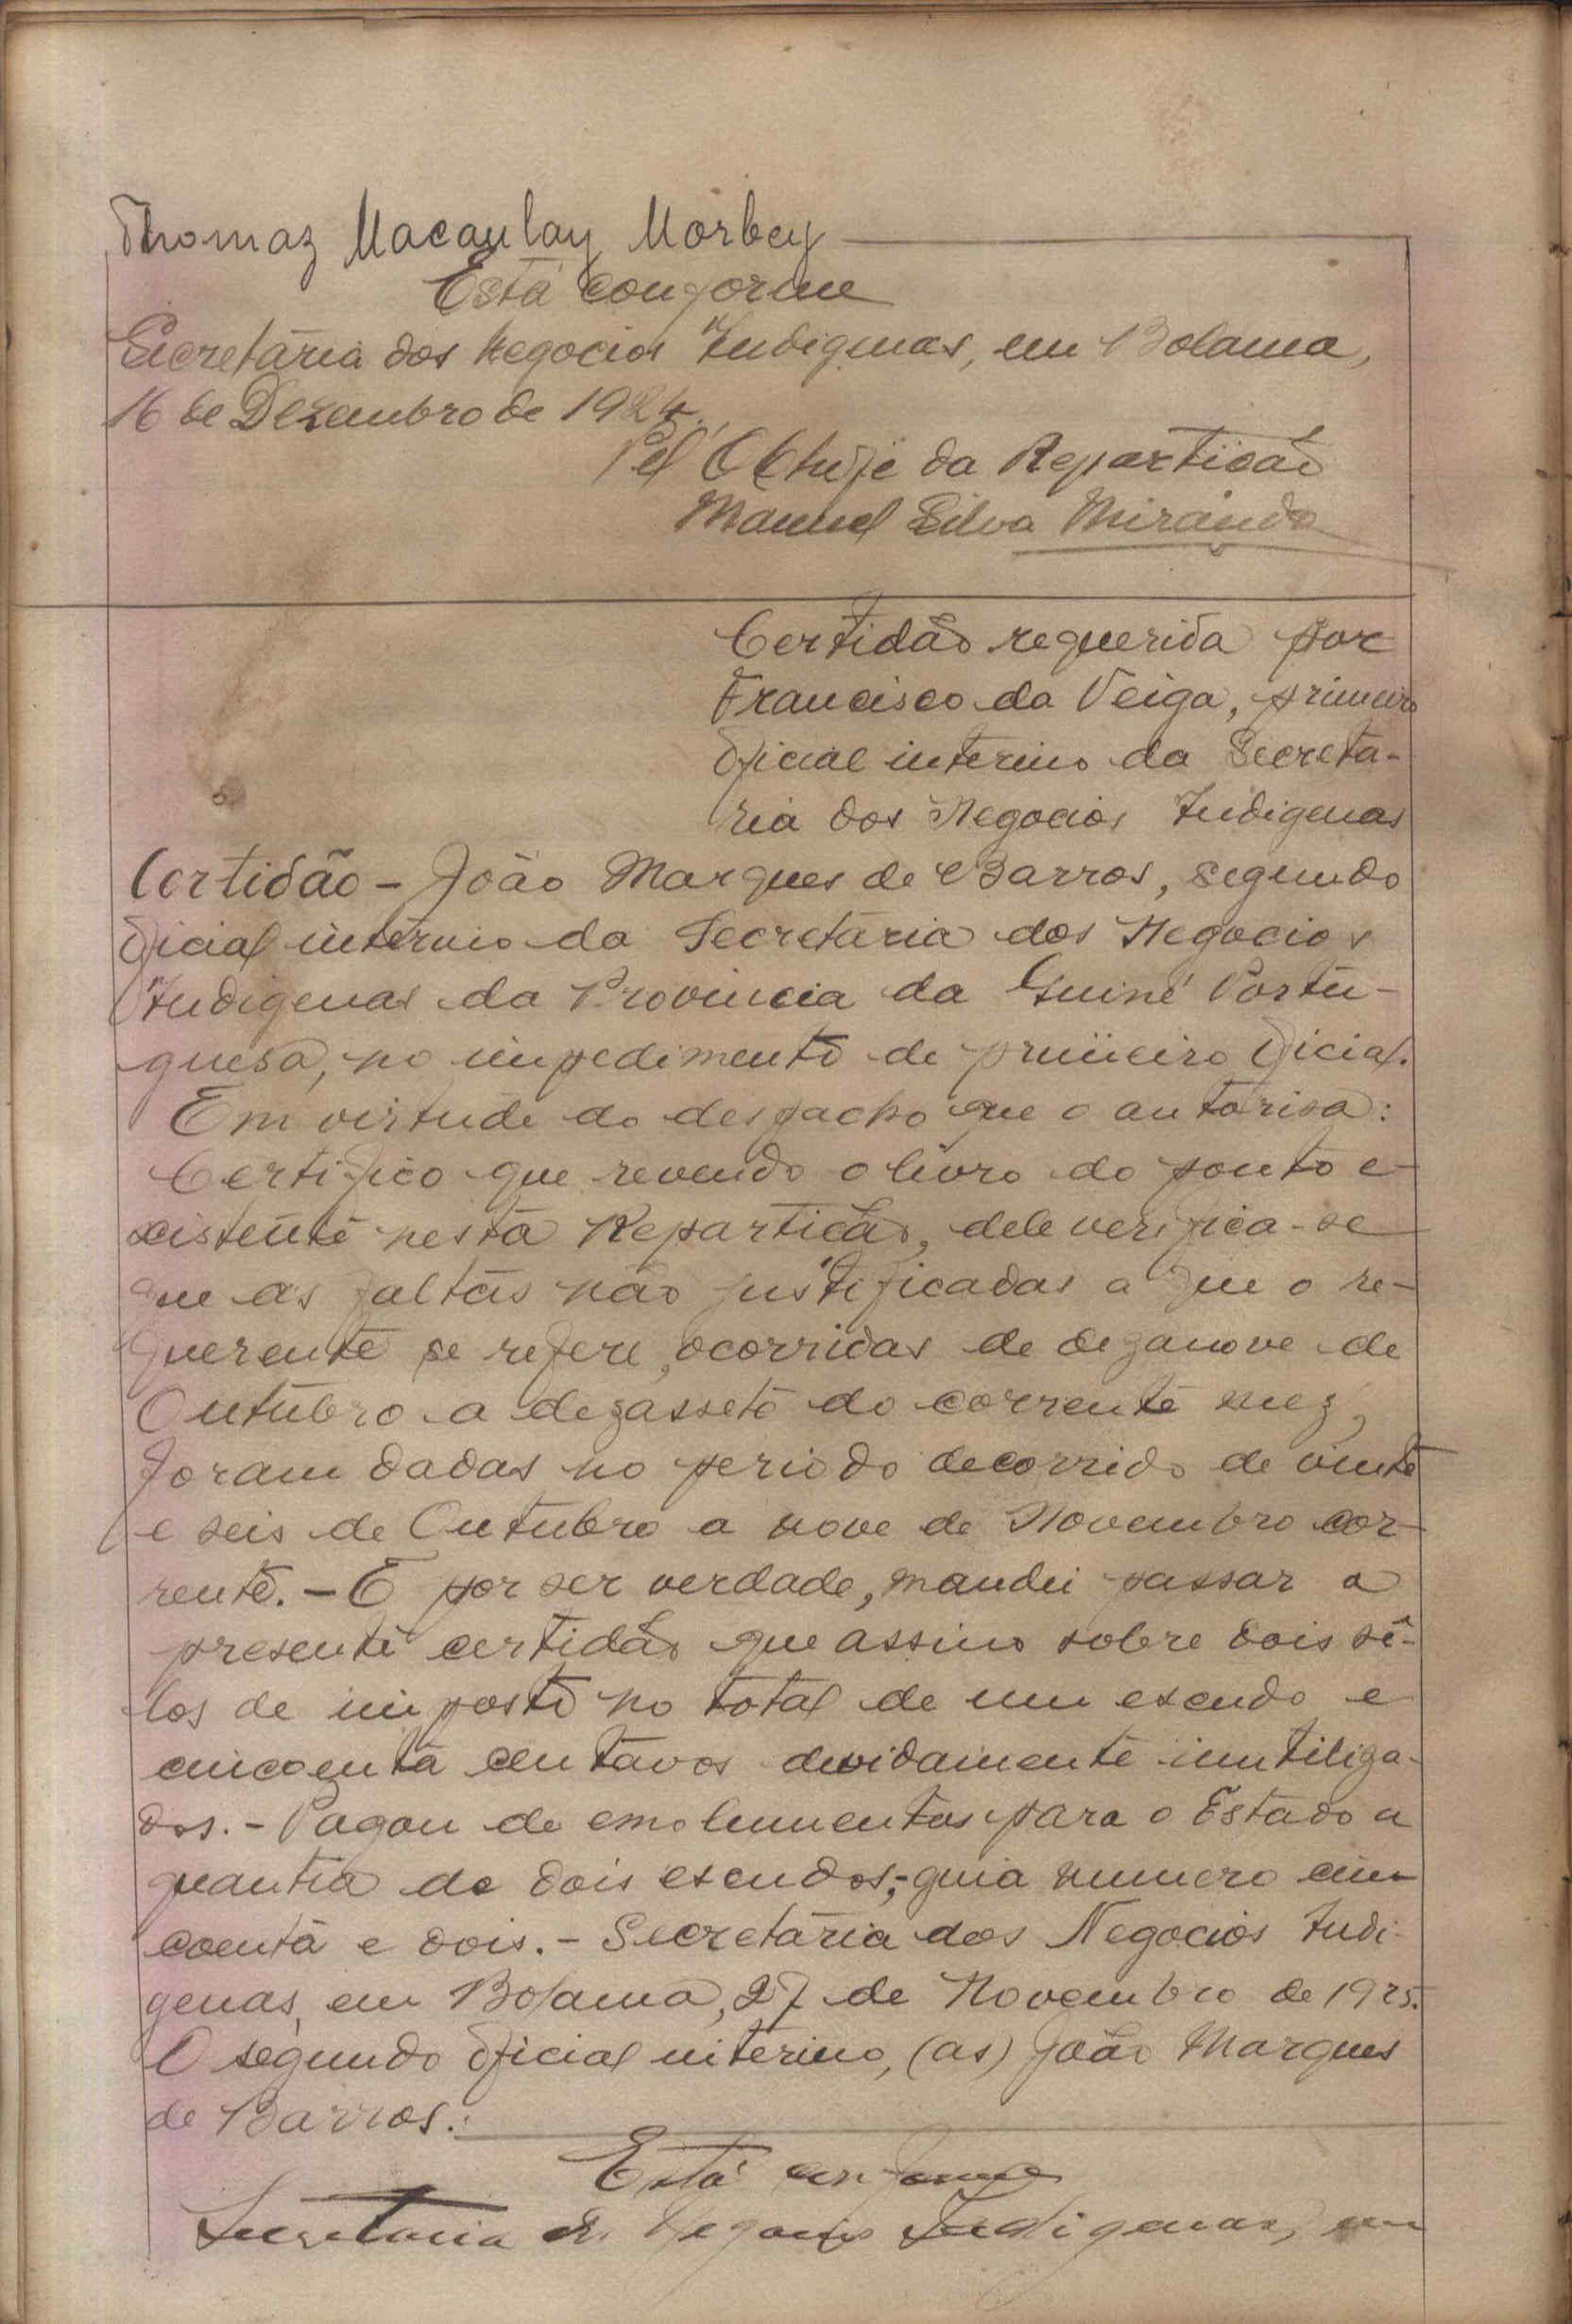 Thomaz Macaulay Morbey
Está conforme
Secretária dos Negocios Indigenas, em Bolama,
16 de Dezembro de 1924.
Pel' O Chefe da Repartição
Manuel Silva Miranda
Certidão requerida por
Francisco da Veiga, primeiro
oficial interino da Secretá-
ria dos Negocios Indigenas
Certidão - João Marques de Barros, segundo
oficial interino da Secretária dos Negocios
Indigenas da Provincia da Guiné Portu-
guesa, no impedimento de primeiro oficial.
Em virtude do despacho que o autorisa:
Certifico que revendo o livro do ponto e-
xistente nesta Repartição, dele verifica-se
que as faltas não justificadas a que o re-
querente se refere, ocorridas de dezanove de
Outubro a dezassete do corrente mez,
foram dadas no periodo decorrido de vinte
e seis de Outubro a nove de Novembro cor-
rente. - E por ser verdade, mandei passar a
presente certidão que assino sobre dois sê-
los de imposto no total de um escudo e
cincoenta centavos devidamente inutiliza-
dos. - Pagou de emolumentos para o Estado a
quantia de dois escudos, - guia numero cin-
coenta e dois. - Secretária dos Negocios Indi-
genas, em Bolama, 27 de Novembro de 1925.
O segundo oficial interino, (as) João Marques
de Barros.:
Está conforme
Secretaria dos Negocios Indigenas, em